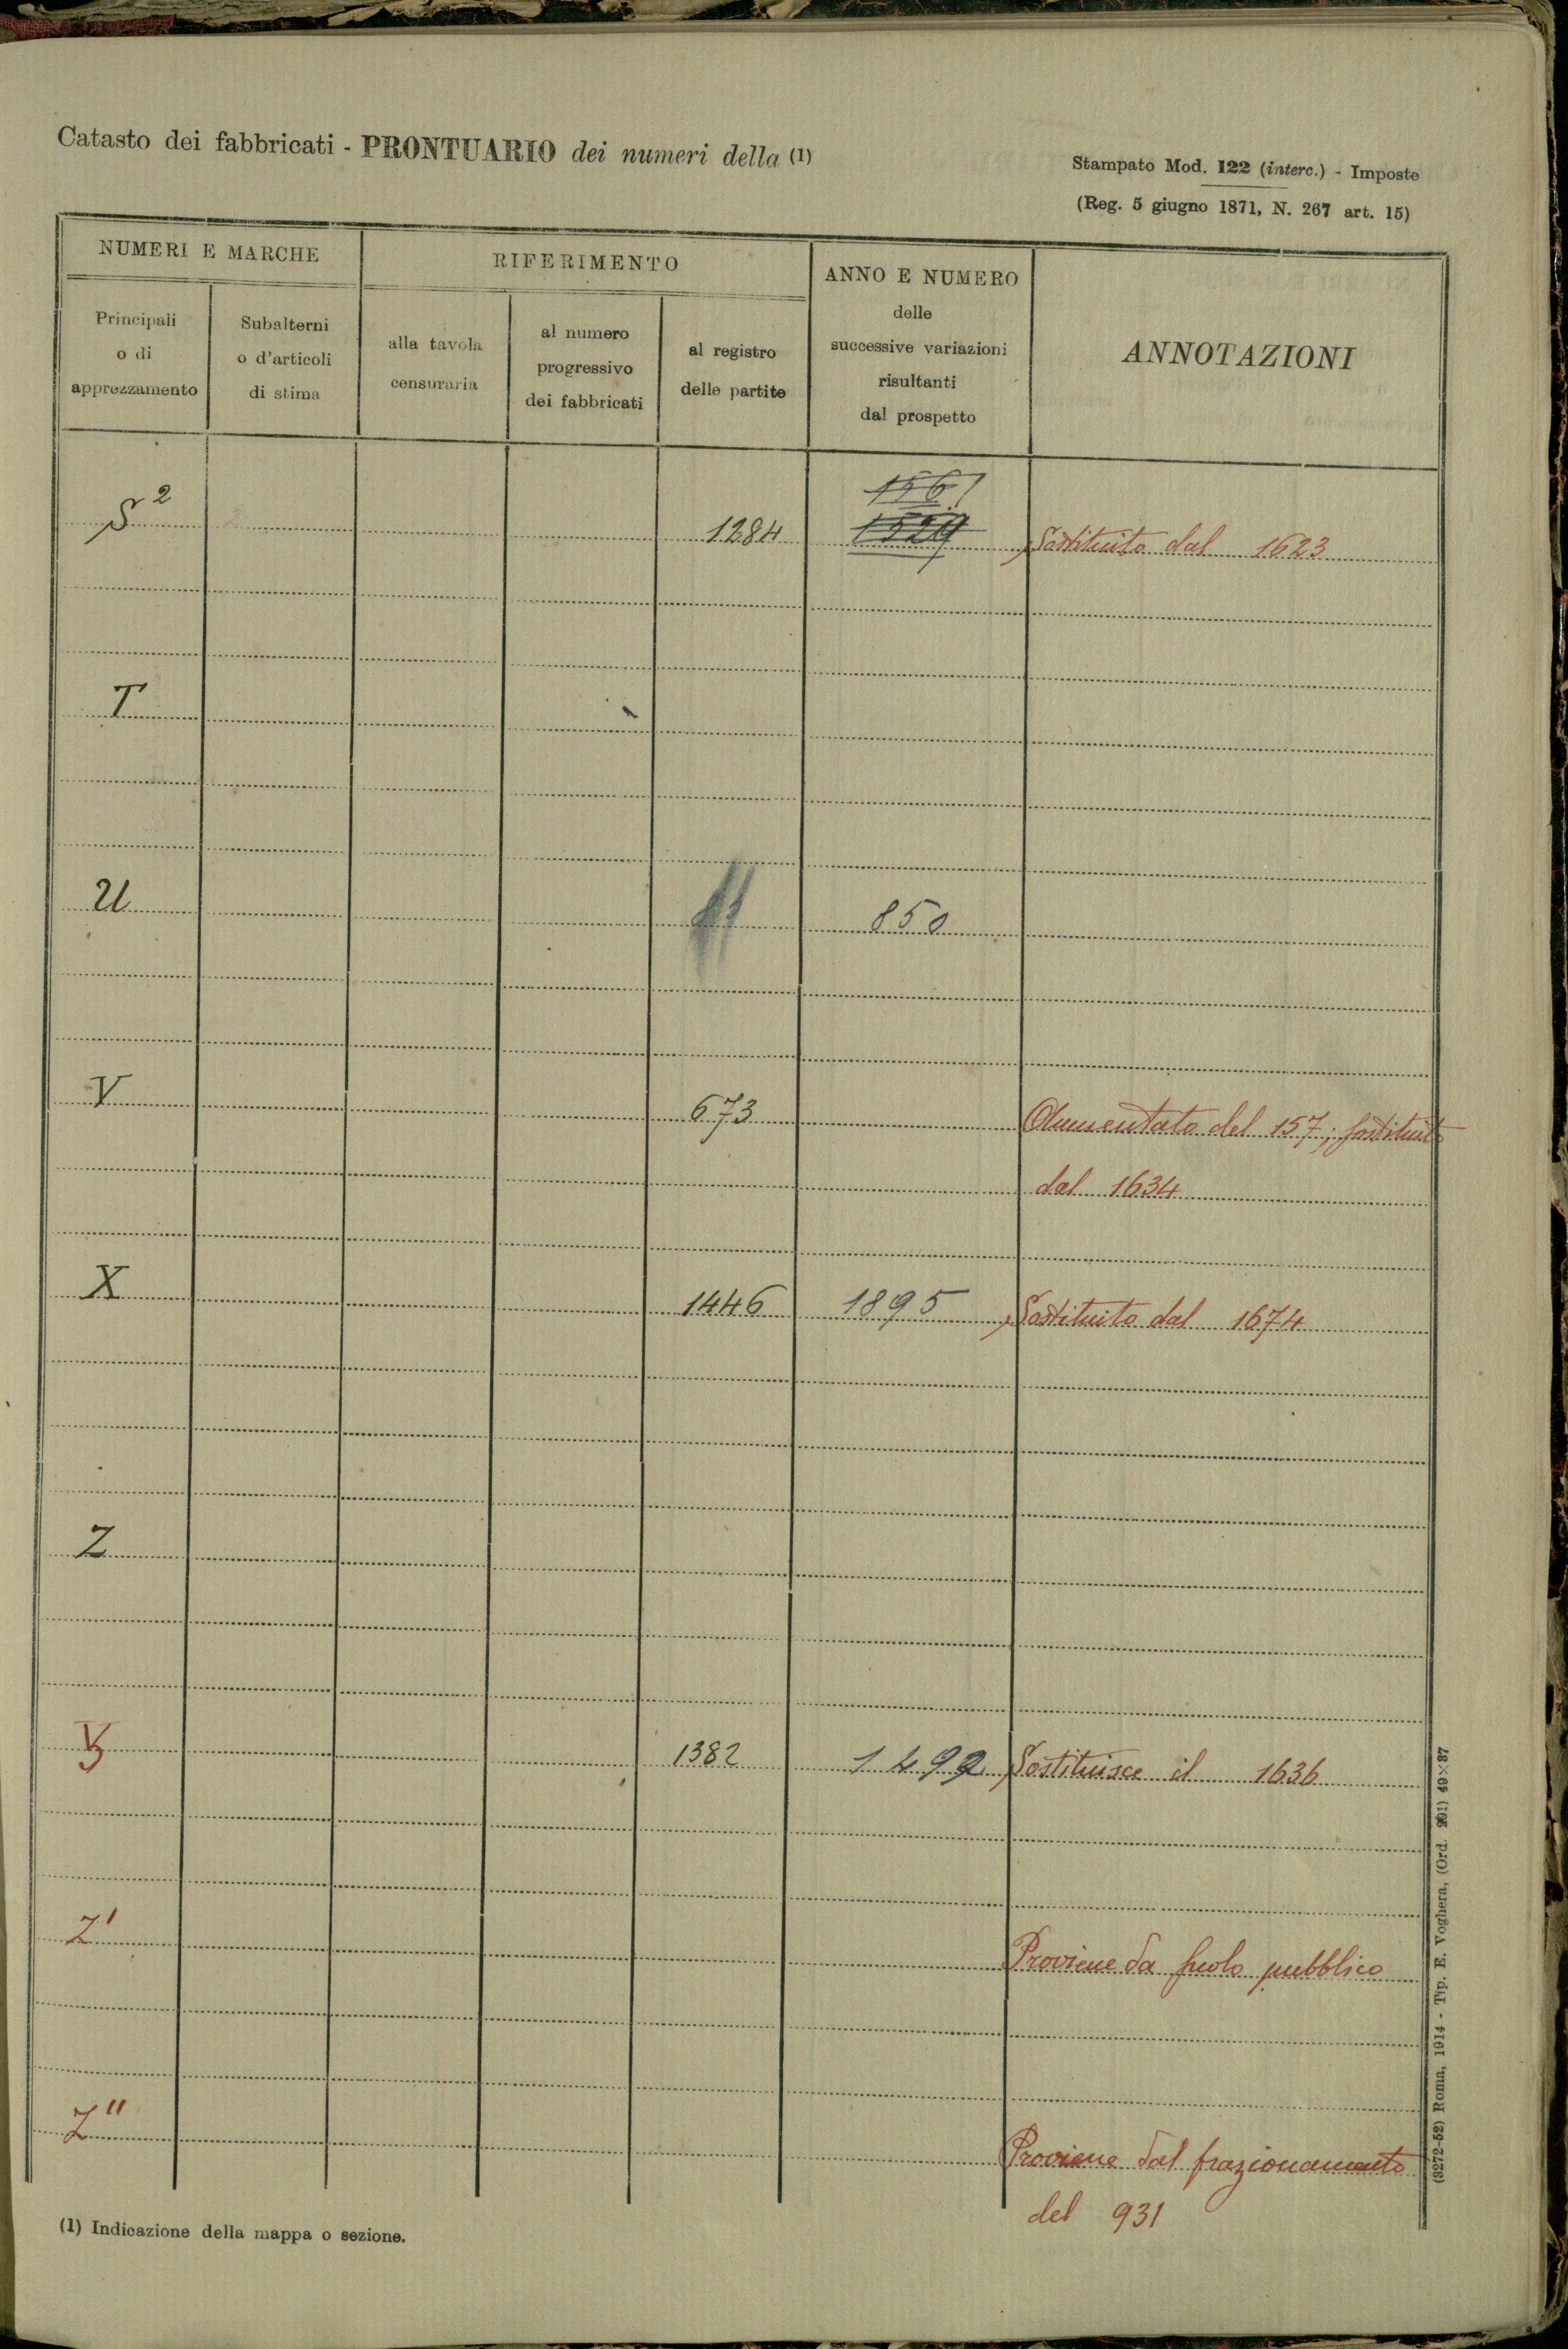 Catasto dei fabbricati - PRONTUARIO dei numeri della (1)
Stampato Mod. 122 (interc.) - Imposte
(Reg. 5 giugno 1871, N. 267 art. 15)
NUMERI E MARCHE
RIFERIMENTO
ANNO E NUMERO
delle
successive variazioni
risultanti
dal prospetto
ANNOTAZIONI
Principali
o di
apprezzamento
Subalterni
o d'articoli
di stima
alla tavola
censuraria
al numero
progressivo
dei fabbricati
al registro
delle partite
1561
S² 1284 1529 Sostituito dal 1623
T
U 850
V 673 Aumentato del 157; sostituito
dal 1634
X 1446 1895 Sostituito dal 1674
Z
1382 1492 Sostituisce il 1636
Z' Proviene da suolo pubblico
Z" Proviene dal frazionamento
del 931
(1) Indicazione della mappa o sezione.
(3272-52) Roma, 1914 - Tip. E. Voghera, (Ord. 201) 49×37